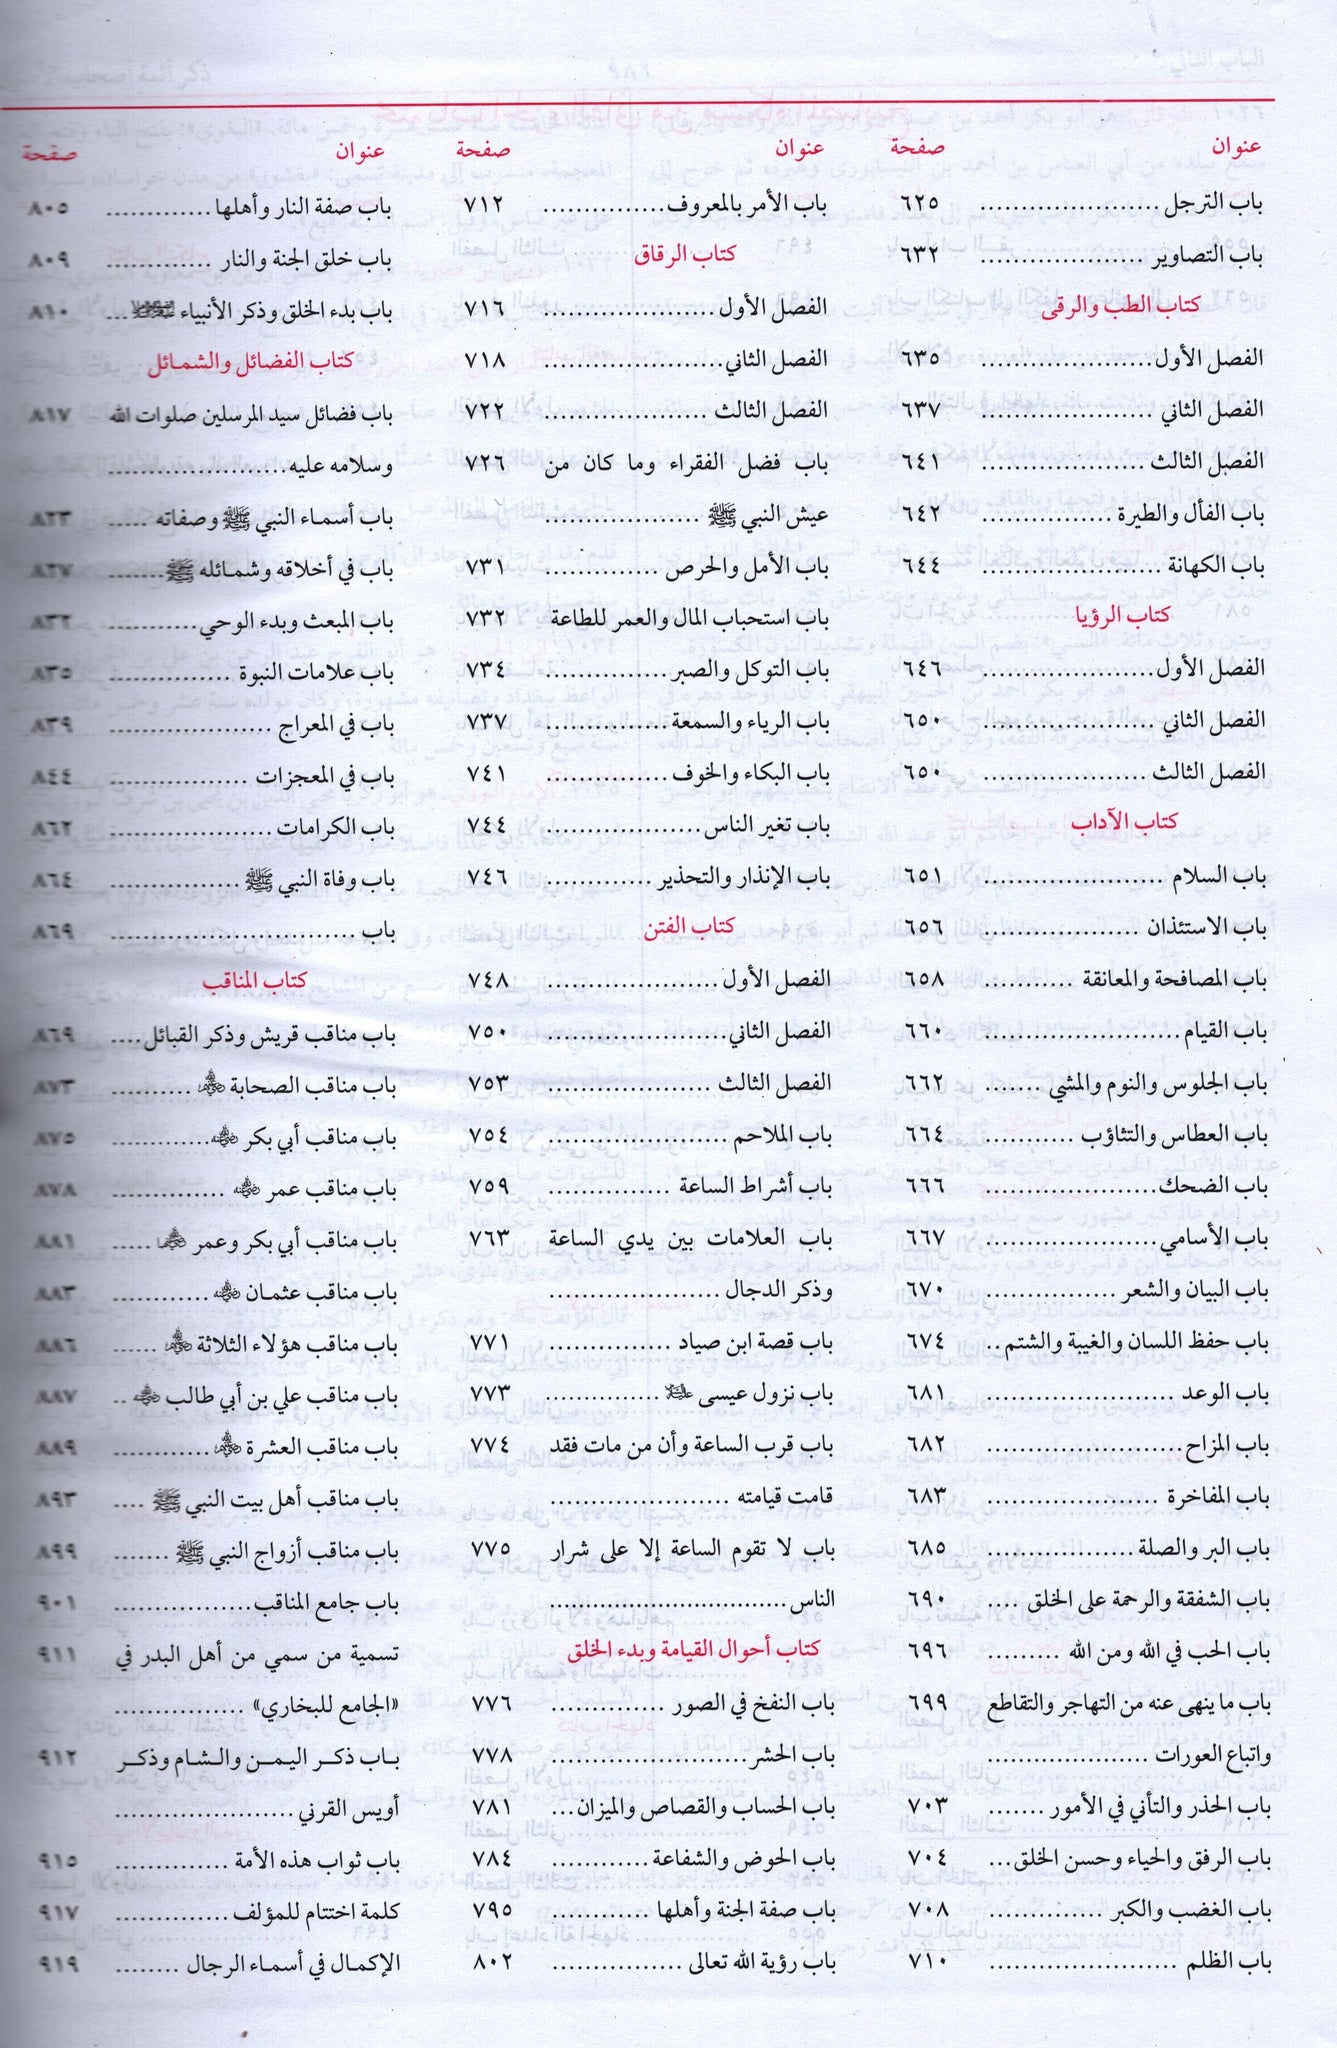 عنوان صفحة
باب الترجل ...................... ٦٢٥
باب التصاوير .................... ٦٣٢
كتاب الطب والرقى
الفصل الأول ..................... ٦٣٥
الفصل الثاني ..................... ٦٣٧
الفصل الثالث .................... ٦٤١
باب الفأل والطيرة ................ ٦٤٢
باب الكهانة ...................... ٦٤٤
كتاب الرؤيا
الفصل الأول ..................... ٦٤٦
الفصل الثاني ..................... ٦٥٠
الفصل الثالث .................... ٦٥٠
كتاب الآداب
باب السلام ...................... ٦٥١
باب الاستئذان ................... ٦٥٦
باب المصافحة والمعانقة ........... ٦٥٨
باب القيام ........................ ٦٦٠
باب الجلوس والنوم والمشي ....... ٦٦٢
باب العطاس والتثاؤب ........... ٦٦٤
باب الضحك ..................... ٦٦٦
باب الأسامي ..................... ٦٦٧
باب البيان والشعر ................ ٦٧٠
باب حفظ اللسان والغيبة والشتم .. ٦٧٤
باب الوعد ....................... ٦٨١
باب المزاح ........................ ٦٨٢
باب المفاخرة ..................... ٦٨٣
باب البر والصلة .................. ٦٨٥
باب الشفقة والرحمة على الخلق .... ٦٩٠
باب الحب في الله ومن الله ......... ٦٩٦
باب ما ينهى عنه من التهاجر والتقاطع ٦٩٩
واتباع العورات ....................
باب الحذر والتأني في الأمور ....... ٧٠٣
باب الرفق والحياء وحسن الخلق ... ٧٠٤
باب الغضب والكبر .............. ٧٠٨
باب الظلم ....................... ٧١٠
عنوان صفحة
باب الأمر بالمعروف ............... ٧١٢
كتاب الرقاق
الفصل الأول ..................... ٧١٦
الفصل الثاني ...................... ٧١٨
الفصل الثالث .................... ٧٢٢
باب فضل الفقراء وما كان من ٧٢٦
عيش النبي ﷺ ...................
باب الأمل والحرص .............. ٧٣١
باب استحباب المال والعمر للطاعة ٧٣٢
باب التوكل والصبر ............... ٧٣٤
باب الرياء والسمعة ............... ٧٣٧
باب البكاء والخوف ............... ٧٤١
باب تغير الناس ................... ٧٤٤
باب الإنذار والتحذير ............. ٧٤٦
كتاب الفتن
الفصل الأول ..................... ٧٤٨
الفصل الثاني ...................... ٧٥٠
الفصل الثالث .................... ٧٥٣
باب الملاحم ...................... ٧٥٤
باب أشراط الساعة ............... ٧٥٩
باب العلامات بين يدي الساعة ٧٦٣
وذكر الدجال .....................
باب قصة ابن صياد ............... ٧٧١
باب نزول عيسى عليه السلام .............. ٧٧٣
باب قرب الساعة وأن من مات فقد ٧٧٤
قامت قيامته ......................
باب لا تقوم الساعة إلا على شرار ٧٧٥
الناس ................................
كتاب أحوال القيامة وبدء الخلق
باب النفخ في الصور .............. ٧٧٦
باب الحشر ........................ ٧٧٨
باب الحساب والقصاص والميزان ... ٧٨١
باب الحوض والشفاعة ............ ٧٨٤
باب صفة الجنة وأهلها ............ ٧٩٥
باب رؤية الله تعالى ................ ٨٠٢
عنوان صفحة
باب صفة النار وأهلها ............. ٨٠٥
باب خلق الجنة والنار ............. ٨٠٩
باب بدء الخلق وذكر الأنبياء ... ٨١٠
كتاب الفضائل والشمائل
باب فضائل سيد المرسلين صلوات الله ٨١٧
وسلامه عليه ......................
باب أسماء النبي ﷺ وصفاته ...... ٨٢٣
باب في أخلاقه وشمائله ﷺ ....... ٨٢٧
باب المبعث وبدء الوحي ........... ٨٣٢
باب علامات النبوة ............... ٨٣٥
باب في المعراج .................... ٨٣٩
باب في المعجزات ................. ٨٤٤
باب الكرامات .................... ٨٦٢
باب وفاة النبي ﷺ ................ ٨٦٤
باب .............................. ٨٦٩
كتاب المناقب
باب مناقب قريش وذكر القبائل .... ٨٦٩
باب مناقب الصحابة رضي الله عنهم .......... ٨٧٣
باب مناقب أبي بكر رضي الله عنه ............ ٨٧٥
باب مناقب عمر رضي الله عنه .............. ٨٧٨
باب مناقب أبي بكر وعمر رضي الله عنهما ..... ٨٨١
باب مناقب عثمان رضي الله عنه ............ ٨٨٣
باب مناقب هؤلاء الثلاثة رضي الله عنهم ...... ٨٨٦
باب مناقب علي بن أبي طالب رضي الله عنه .. ٨٨٧
باب مناقب العشرة رضي الله عنهم ............ ٨٨٩
باب مناقب أهل بيت النبي ﷺ .... ٨٩٣
باب مناقب أزواج النبي ﷺ ....... ٨٩٩
باب جامع المناقب ................. ٩٠١
تسمية من سمي من أهل البدر في ٩١١
«الجامع للبخاري» ................
باب ذكر اليمن والشام وذكر ٩١٢
أويس القرني ......................
باب ثواب هذه الأمة .............. ٩١٥
كلمة اختتام للمؤلف .............. ٩١٧
الإكمال في أسماء الرجال ........ ٩١٩